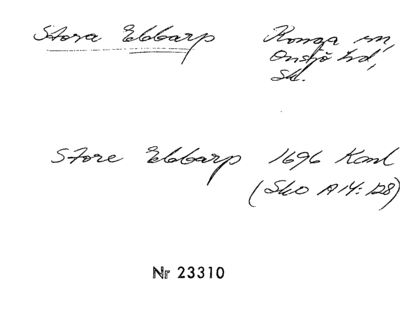 Stora Ebbarp Konga sn,
Onsjö hd,
Sk.
Store Ebbarp 1696 Karl
(Sko A 14: 128)
Nr 23310